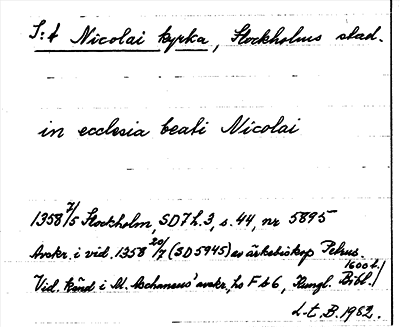 S:t Nicolai kyrka, Stockholms stad.
in ecclesia beati Nicolai
1358 7/5 Stockholm, SD7 h.3, s. 44, nr 5895
Avskr. i vid. 1358 20/7 (SD 5945) av ärkebiskop Petrus.
Vid. känd i M. Aschaneus' avskr., hs F b 6, Kungl. Bibl. 1600 t./
L-t. B. 1982.